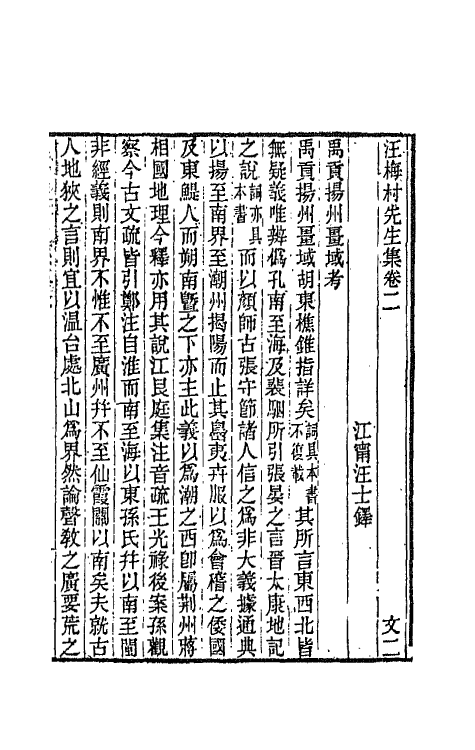 汪梅村先生集卷二　文二
江甯汪士鐸
禹貢揚州畺域考
禹貢揚州畺域胡東樵錐指詳矣詞具本書不複載其所言東西北皆
無疑義唯辨僞孔南至海及裴駰所引張晏之言晉太康地記
之說詞亦具本書而以顏師古張守節諸人信之爲非大義據通典
以揚至南界至潮州揭陽而止其島夷卉服以爲會稽之倭國
及東鯷人而朔南曁之下亦主此義以爲潮之西卽屬荆州蔣
相國地理今釋亦用其說江艮庭集注音疏王光祿後案孫觀
察今古文疏皆引鄭注自淮而南至海以東孫氏幷以南至閩
非經義則南界不惟不至廣州幷不至仙霞關以南矣夫就古
人地狹之言則宜以温台處北山爲界然論聲敎之廣要荒之